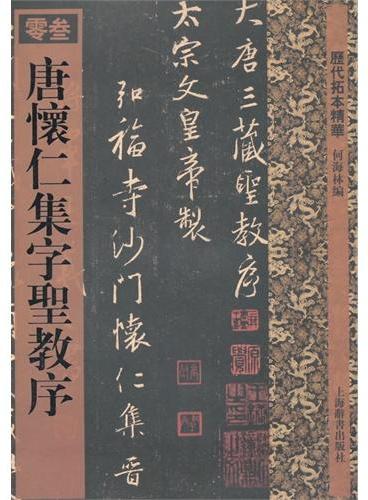 歷代拓本精華
何海林编
上海辭書出版社
大唐三藏聖教序
太宗文皇帝製
弘福寺沙門懷仁集晉
零叁
唐懷仁集字聖教序